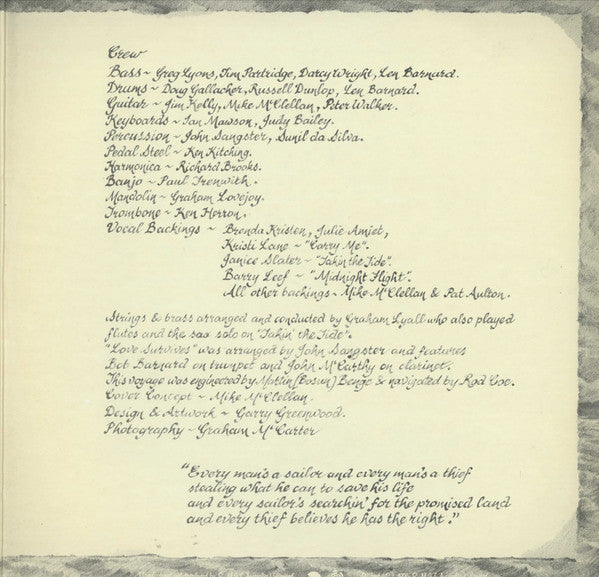 Crew
Bass ~ Greg Lyons, Tim Partridge, Darcy Wright, Len Barnard.
Drums ~ Doug Gallacher, Russell Dunlop, Len Barnard.
Guitar ~ Jim Kelly, Mike McClellan, Peter Walker.
Keyboards ~ Ian Mawson, Judy Bailey.
Percussion ~ John Sangster, Sunil da Silva.
Pedal Steel ~ Ken Kitching.
Harmonica ~ Richard Brooks.
Banjo ~ Paul Trenwith.
Mandolin ~ Graham Lovejoy.
Trombone ~ Ken Herron.
Vocal Backings ~ Brenda Kristen, Julie Amiet,
Kristi Lane ~ "Carry Me".
Janice Slater ~ "Takin' the Tide".
Barry Leef ~ "Midnight Flight".
All other backings ~ Mike McClellan & Pat Aulton.
Strings & brass arranged and conducted by Graham Lyall who also played
flutes and the sax solo on "Takin' the Tide".
"Love Survives" was arranged by John Sangster and features
Bob Barnard on trumpet and John McCarthy on clarinet.
This voyage was engineered by (Bosun) Benge & navigated by Rod Coe.
Cover Concept ~ Mike McClellan.
Design & Artwork ~ Garry Greenwood.
Photography ~ Graham McCarter
"Every man's a sailor and every man's a thief
stealing what he can to save his life
and every sailor's searchin' for the promised land
and every thief believes he has the right."